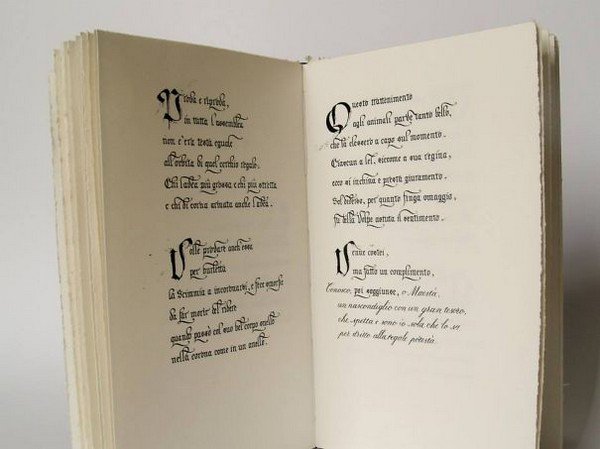 Prova e riprova,
in tutta l'assemblea
non c'era testa eguale
all'orbita di quel cerchio regale.
Chi l'avea più grossa e chi più stretta
e chi di corna armata anche l'avea.
Volle provare anch'essa
per burletta
la Scimmia a incoronarsi, e fece smorfie
da far morir del ridere
quando passò col suo bel corpo snello
nella corona come in un anello.
Questo trattenimento
agli animali parve tanto bello,
che la elessero a capo sul momento.
Ciascun a lei, siccome a sua regina,
ecco si inchina e presta giuramento.
Sol della, per quanto finga omaggio,
fu della Volpe notata il sentimento.
Venne costei,
ma fatto un complimento,
Conosco, poi soggiunse, o Maestà,
un nascondiglio con un gran tesoro,
che spetta e sono io sola che lo sa
per dritto alla regale potestà.